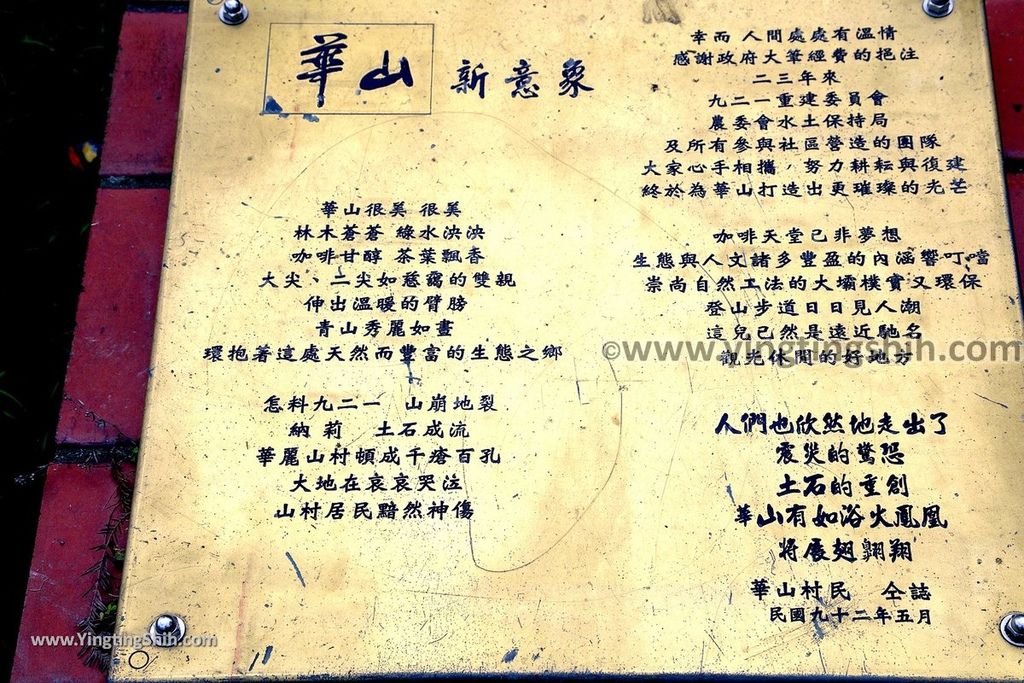 華山 新意象
華山很美 很美
林木蒼蒼 綠水泱泱
咖啡甘醇 茶葉飄香
大尖、二尖如慈靄的雙親
伸出溫暖的臂膀
青山秀麗如畫
環抱著這處天然而豐富的生態之鄉
怎料九二一 山崩地裂
納莉 土石成流
華麗山村頓成千瘡百孔
大地在哀哀哭泣
山村居民黯然神傷
幸而 人間處處有溫情
感謝政府大筆經費的挹注
二三年來
九二一重建委員會
農委會水土保持局
及所有參與社區營造的團隊
大家心手相攜，努力耕耘與復建
終於為華山打造出更璀璨的光芒
咖啡天堂已非夢想
生態與人文諸多豐盈的內涵響叮噹
崇尚自然工法的大壩樸實又環保
登山步道日日見人潮
這兒已然是遠近馳名
觀光休閒的好地方
人們也欣然地走出了
震災的驚恐
土石的重創
華山有如浴火鳳凰
將展翅翱翔
華山村民 仝誌
民國九十二年五月
©www.yingtingshih.com
www.YingtingShih.com